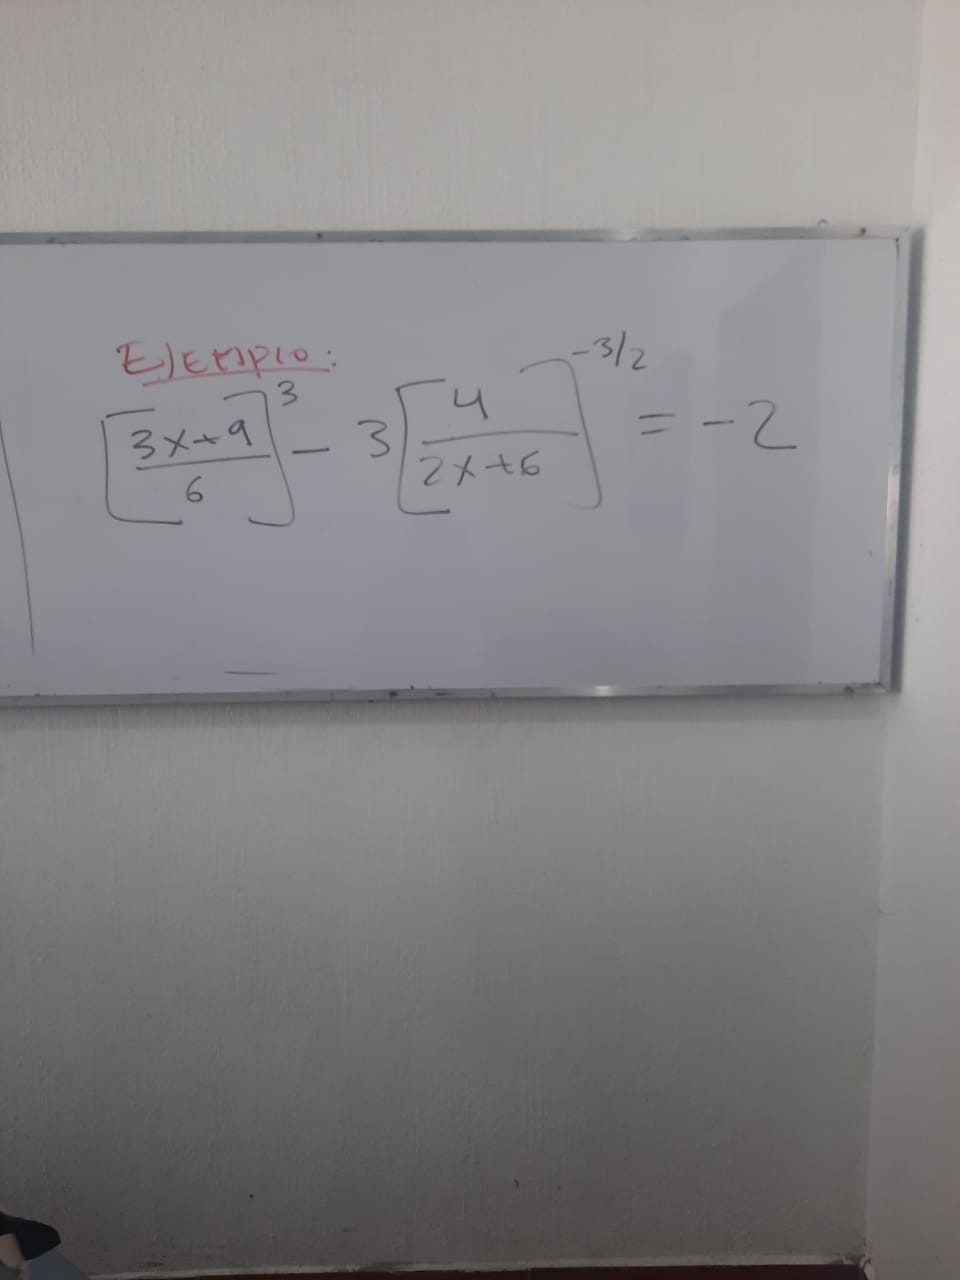 Ejemplo:
[(3x+9)/6]^3 - 3[4/(2x+6)]^(-3/2) = -2